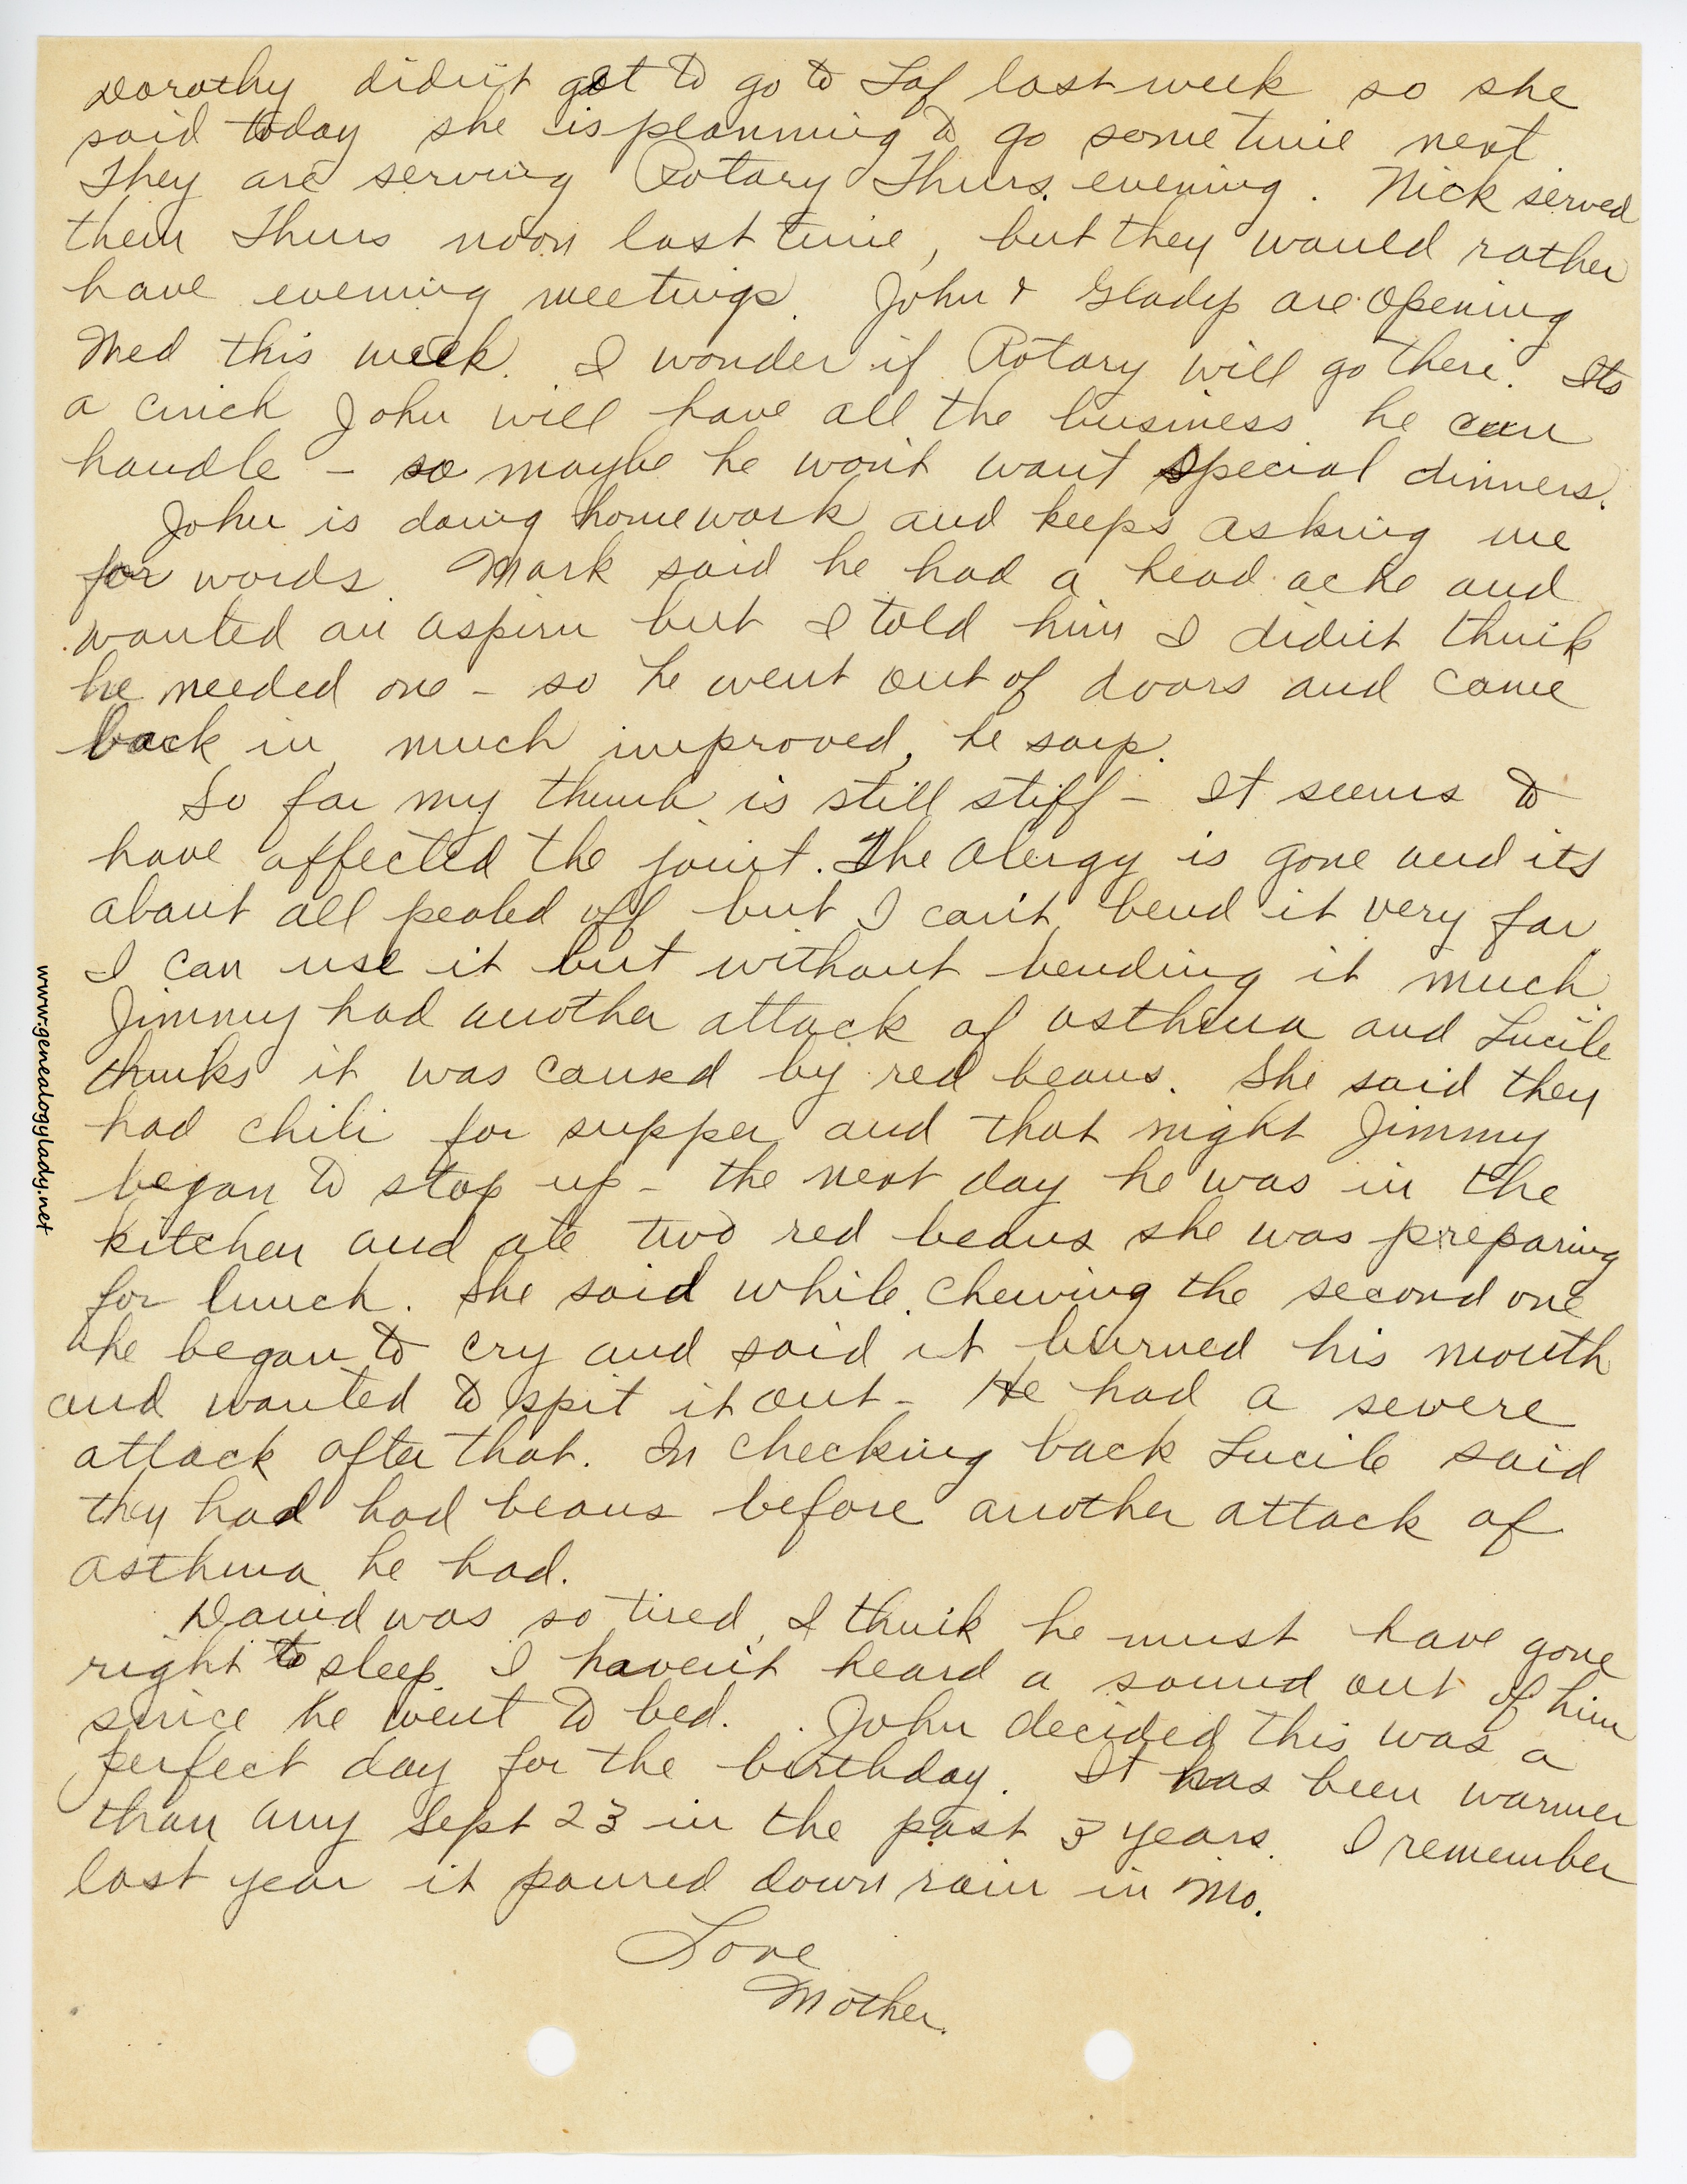 Dorothy didn't get to go to Laf last week so she
said today she is planning to go some time next
They are serving Rotary Thurs. evening. Nick served
them Thurs noon last time, but they would rather
have evening meetings. John & Gladys are opening
Wed this week. I wonder if Rotary will go there. Its
a cinch John will have all the business he can
handle - so maybe he won't want special dinners.
John is doing homework and keeps asking me
for words. Mark said he had a head ache and
wanted an aspirin but I told him I didn't think
he needed one - so he went out of doors and came
back in much improved, he says.
So far my thumb is still stiff - It seems to
have affected the joint. The alergy is gone and its
about all pealed off but I can't bend it very far
I can use it but without bending it much.
Jimmy had another attack of asthma and Lucile
thinks it was caused by red beans. She said they
had chili for supper and that night Jimmy
began to stop up - the next day he was in the
kitchen and ate two red beans she was preparing
for lunch. She said while chewing the second one
he began to cry and said it burned his mouth
and wanted to spit it out - He had a severe
attack after that. In checking back Lucile said
they had had beans before another attack of
asthma he had.
David was so tired, I think he must have gone
right to sleep. I haven't heard a sound out of him
since he went to bed. John decided this was a
perfect day for the birthday. It has been warmer
than any Sept 23 in the past 3 years. I remember
last year it poured down rain in Mo.
Love
Mother.
www.genealogylady.net